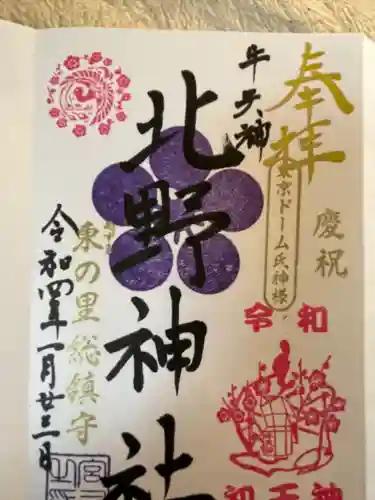 奉拝
慶祝
東京ドーム氏神様
牛天神
北野神社
令和
初天神
東の里総鎮守
令和四年一月廿三日